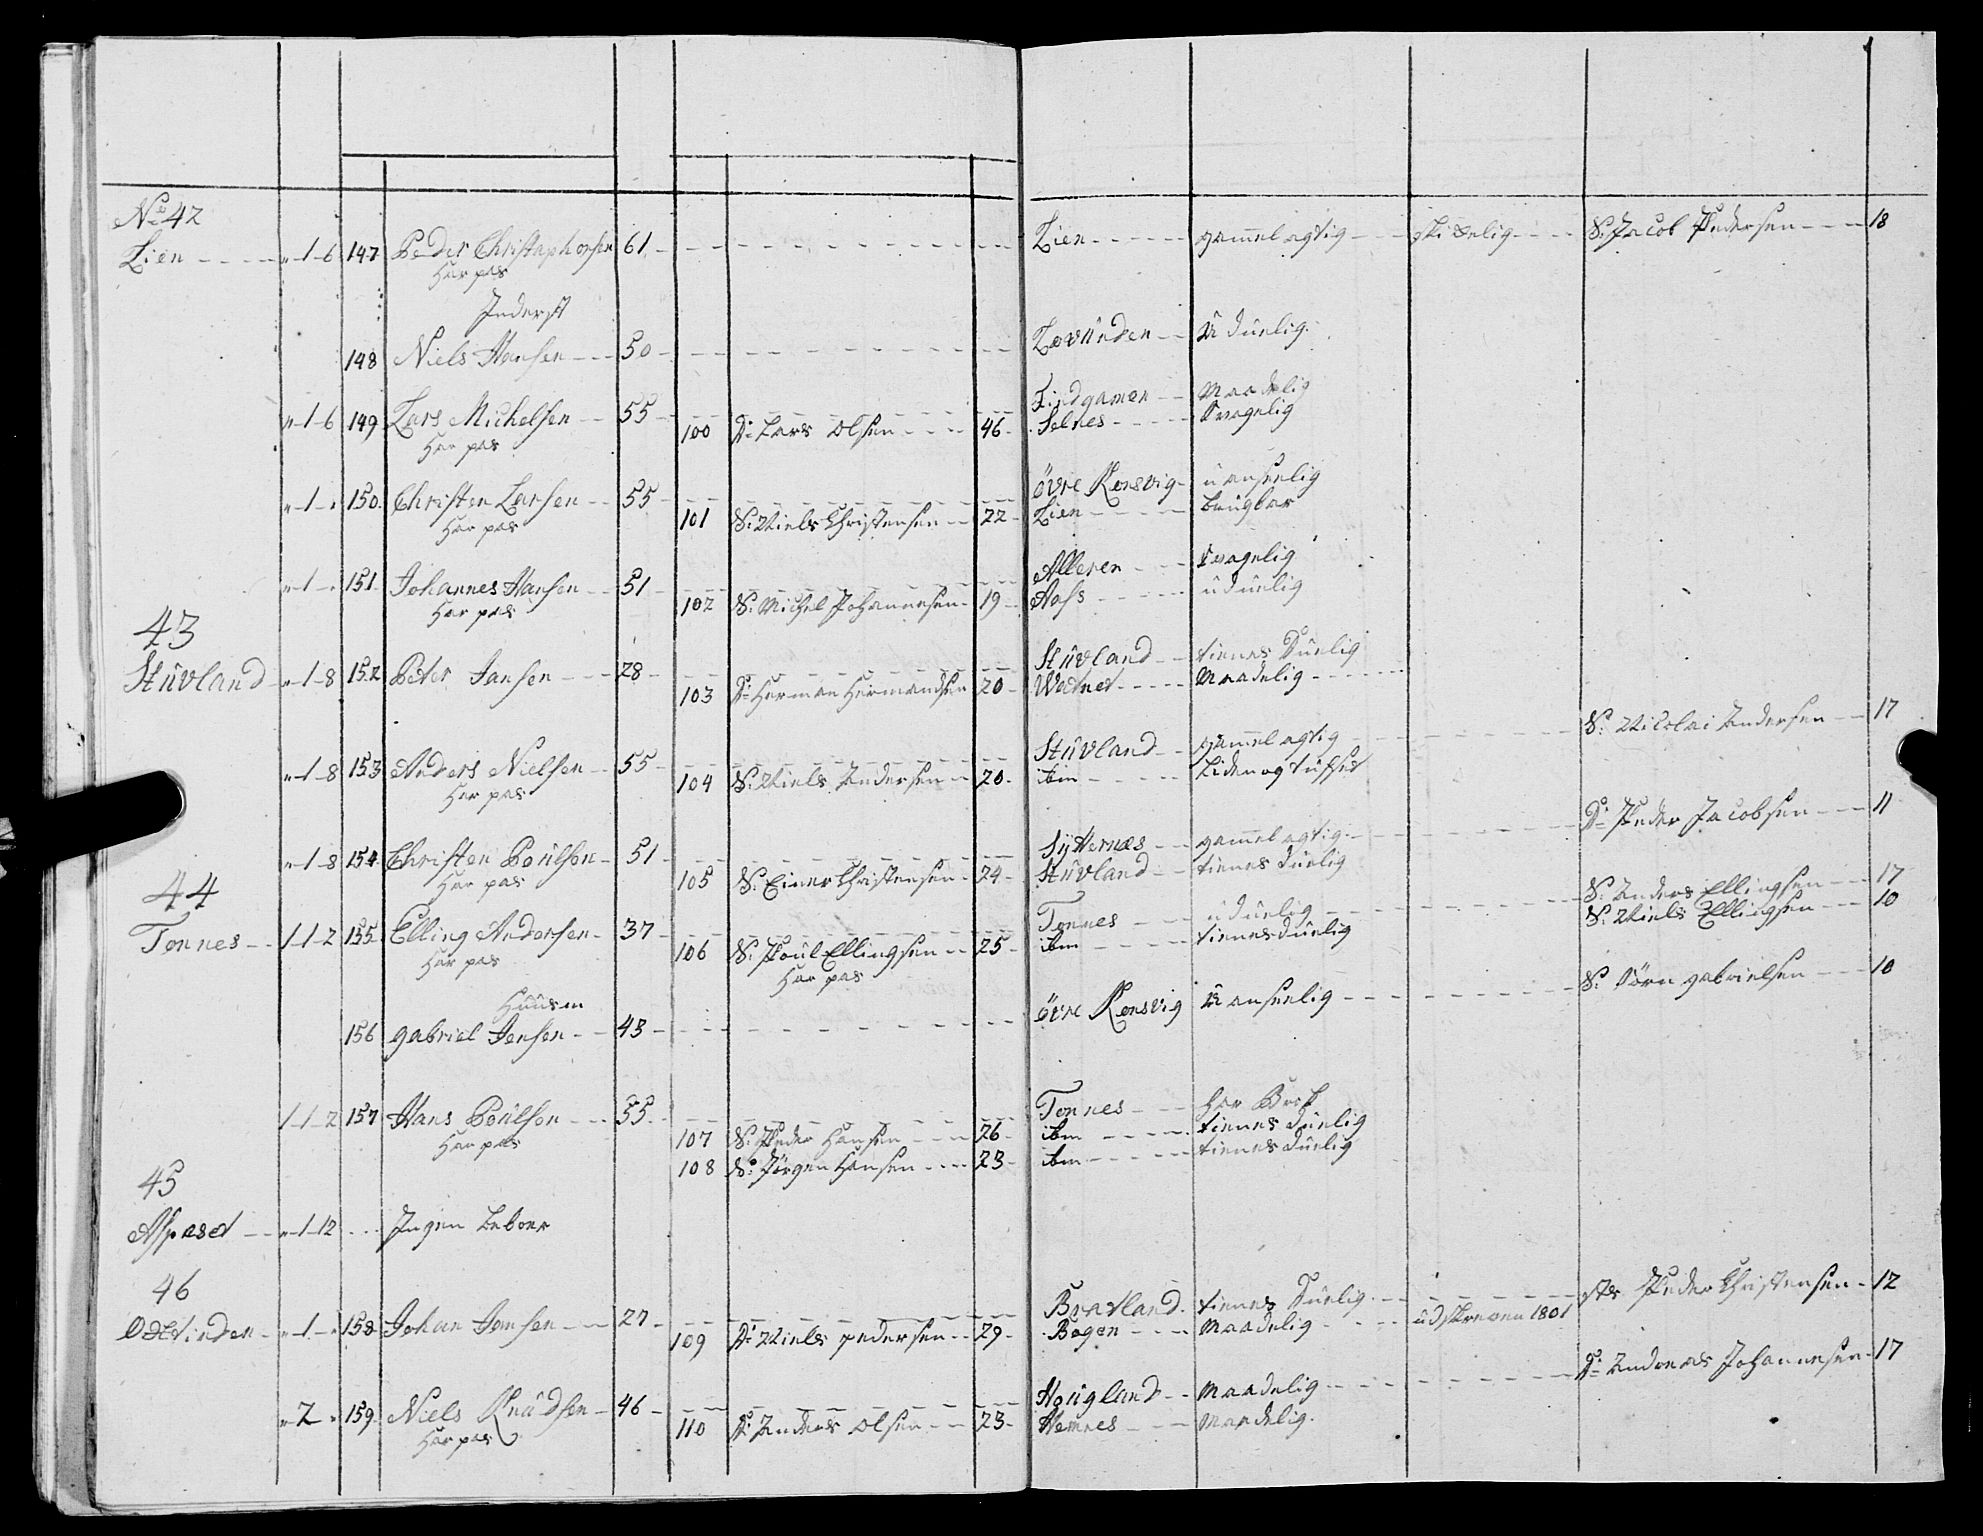 No 42
Lien - - - - " - 1 - 6 147 Peder Christophersen 61. - - - - Lien - - - - gammelagtig - - skikkelig - - - S: Jacob Pedersen - - - 18
Har pas
Inderst
148 Niels Hansen - - - 50 - - - - Lovunden - - uduelig.
" - 1 - 6 149 Lars Michelsen - - 55 - - - - Findgamen - - Maadelig
Har pas 100 D: Lars Olsen - - - 46 - Selnes - - - - Svagelig
" - 1 - " 150. Christen Larsen - - 55 - - - - övre Konsvig - uanseelig
Har pas 101 S: Niels Christensen - - 22 - Lien - - - - brugbar
" - 1 - " 151. Johannes Hansen - - 51 - - - - Alleren - - - Svagelig
Har pas 102 S: Michel Johannesen - 19 - Aass - - - - uduelig
43
Stuvland - " - 1 - 8 152 Peter Jansen - - - 28 - - - - Stuvland - - tienes Duelig
103 D: Herman Hermandsen 20 - Wædnet - - - - Maadelig - - - -
" - 1 - 8 153 Anders Nielsen - - 55 - - - - Stuvland - - gammelagtig - - - - S: Nicolai Andersen - - 17
Har pas 104 S: Niels Andersen - - 20. ibm - - - - Liden og tusset
" - 1 - 8 154 Christen Poulsen - 51 - - - - Sytternæs - - gammelagtig - - - - D: Peder Jacobsen - - - 11
Har pas 105 S: Einer Christensen - 24 - Stuvland - - tienes duelig
44
Tonnes - - 1 - 1 - 2 155 Elling Andersen - 37 - - - - Tonnes - - - uduelig - - - - S: Anders Ellingsen - - - 17
S: Niels Ellingsen - - - 10
Har pas 106 S: Poul Ellingsen - - 25 - ibm - - - - tienes duelig
Har pas
Huusm
156 gabriel Jensen - - 43 - - - - övre Konsvig uanseelig - - - - S: Sörn gabrielsen - - - 10
1 - 1 - 2 157 Hans Poulsen - - - 55 - - - - Tonnes - - - har Brok
Har pas 107 S: Peder Hansen - - - 26 - ibm - - - - tienes Duelig
108 S: Jörgen Hansen - - - 23 - ibm - - - - tienes Duelig
45
Aspased - - " - 1 - 12 - - - Ingen Beboer
46
" - 1 - " 158 Johan Jemsen - - 27 - - - - Bratland. tienes Duelig - - - - sts Peder Christensen - 12
109 D: Niels pedersen - - 29 - Bogen - - - Maadelig - - - - udskreven 1801
" - 2 - " 159 Niels Knudsen - 46 - - - - Hougland - - Maadelig - - - - D: Andreas Johannesen - 17
Har pas 110 D: Anders Olsen - - - 23 - Hemnes - - - Maadelig.